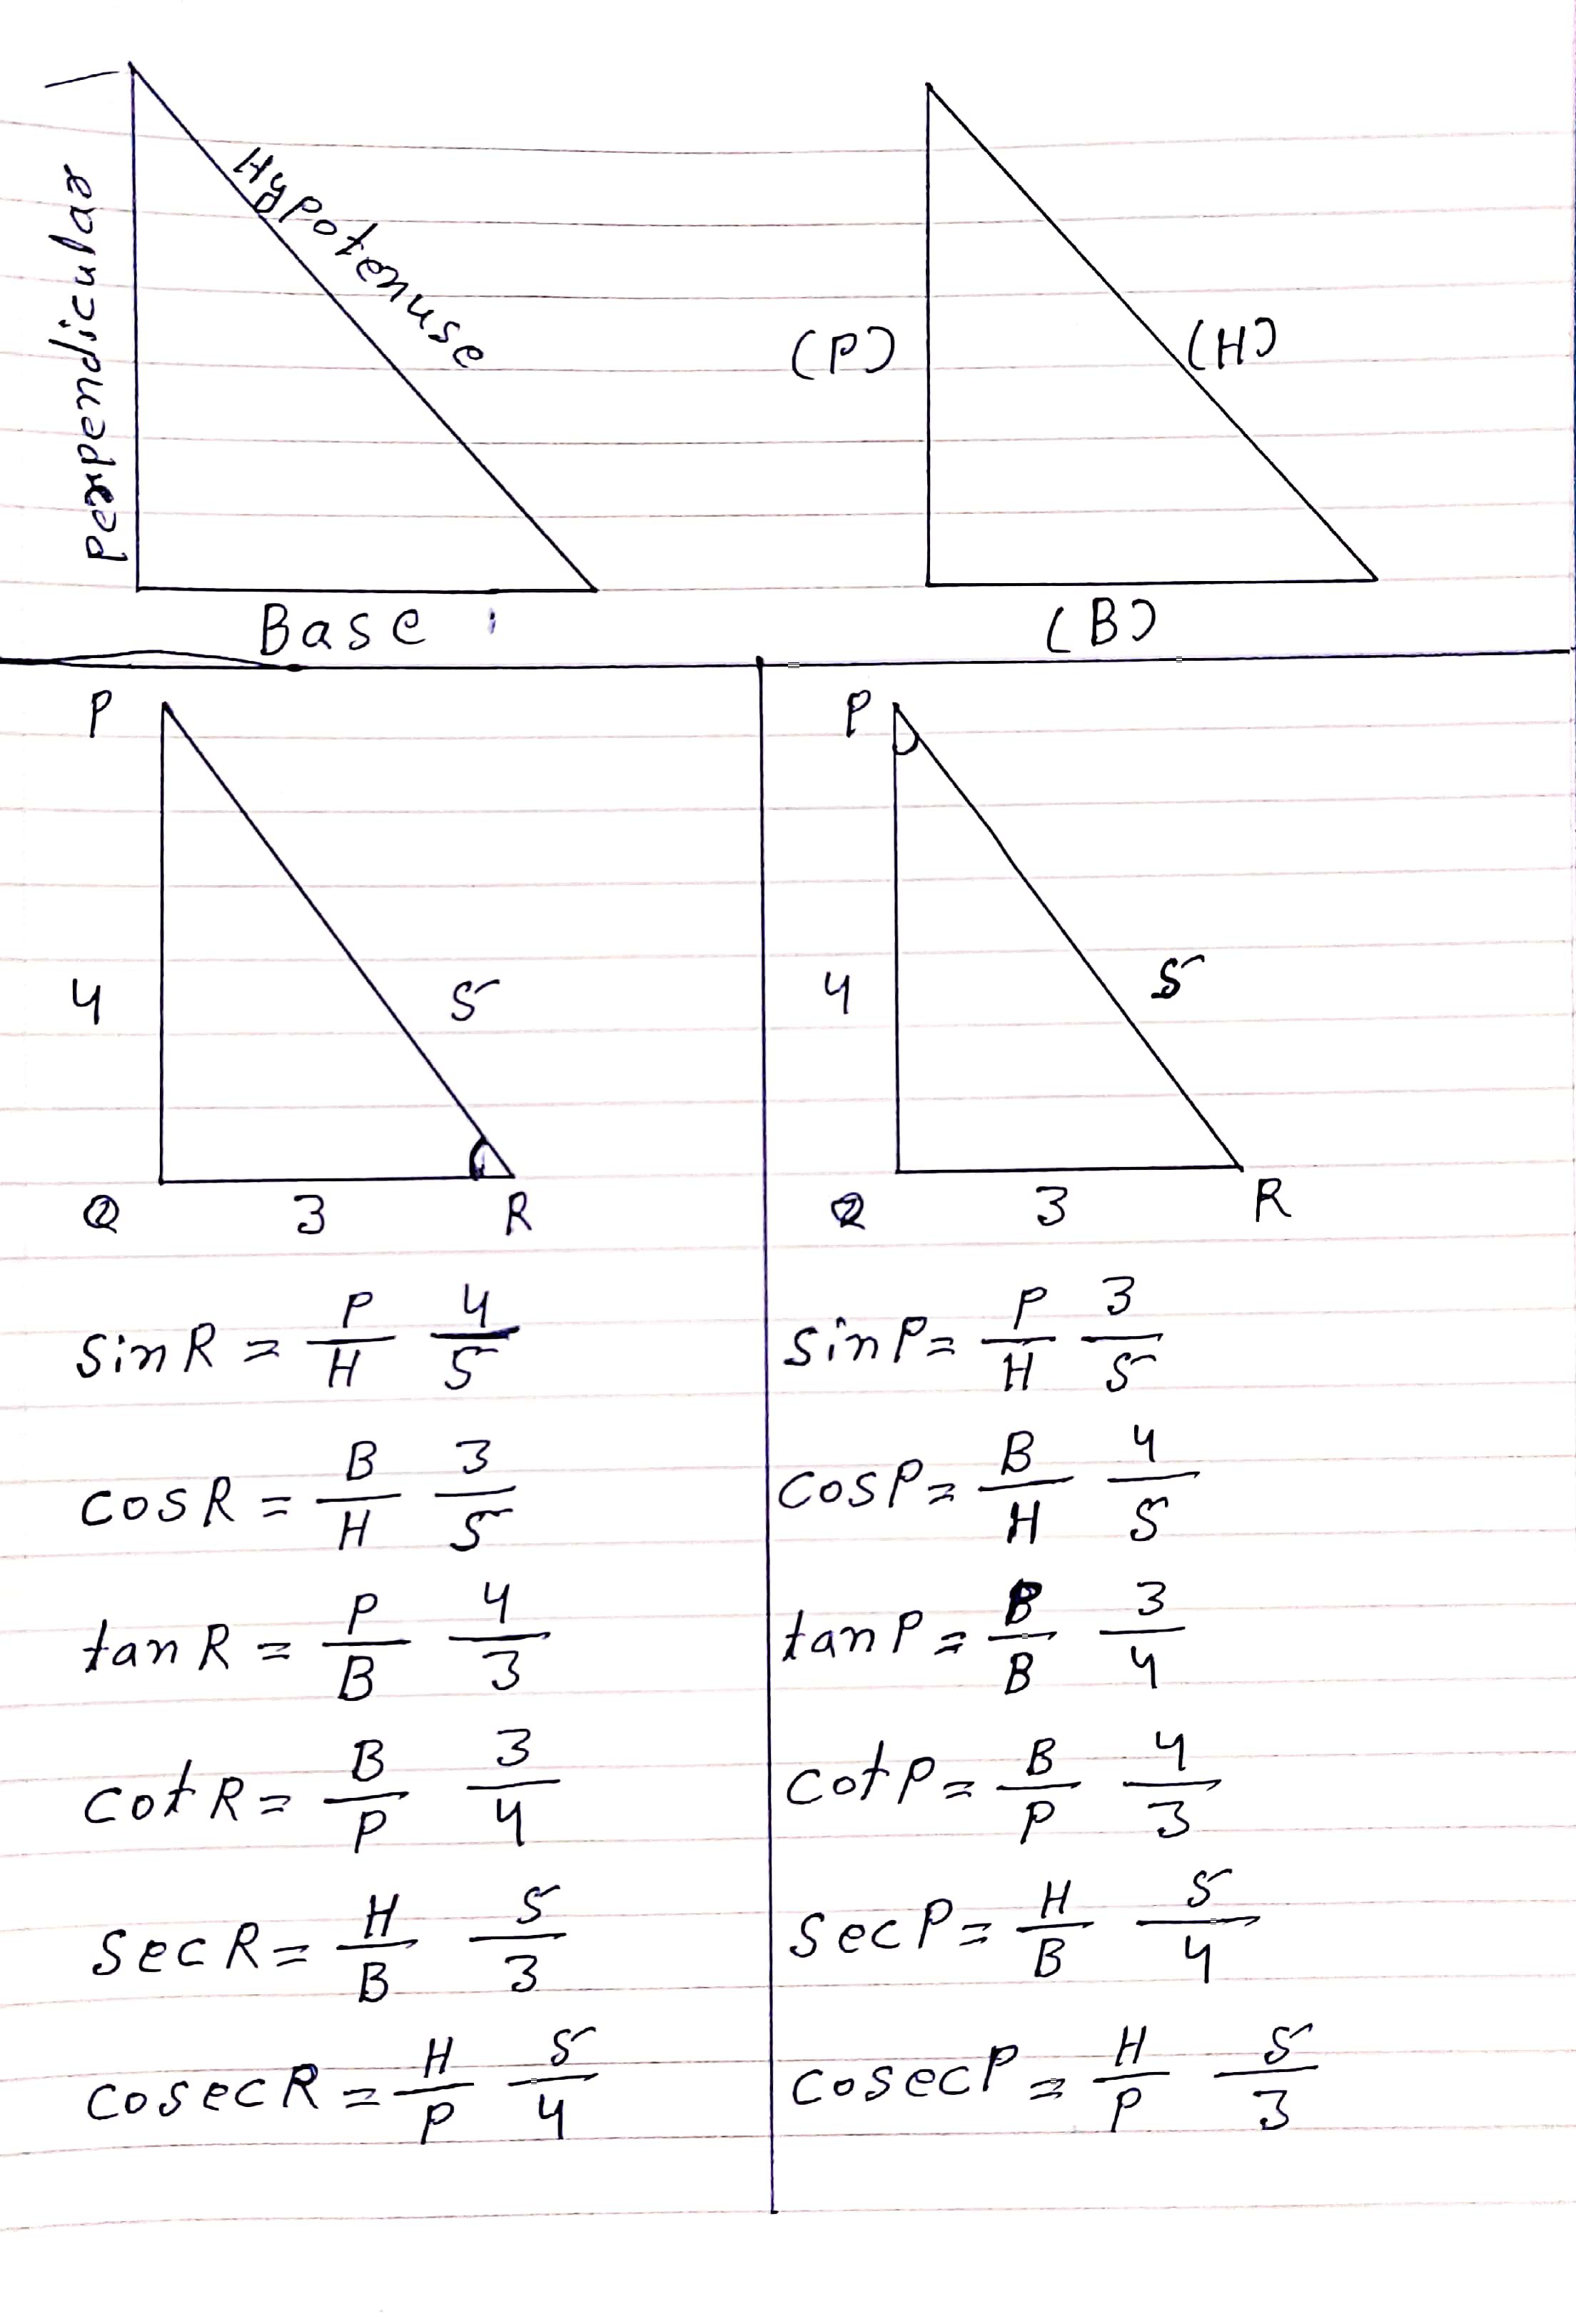 Perpendicular
Hypotenuse
Base
(P)
(H)
(B)
P
4
5
Q
3
R
sin R = P/H 4/5
cos R = B/H 3/5
tan R = P/B 4/3
cot R = B/P 3/4
sec R = H/B 5/3
cosec R = H/P 5/4
P
4
5
Q
3
R
sin P = P/H 3/5
cos P = B/H 4/5
tan P = P/B 3/4
cot P = B/P 4/3
sec P = H/B 5/4
cosec P = H/P 5/3